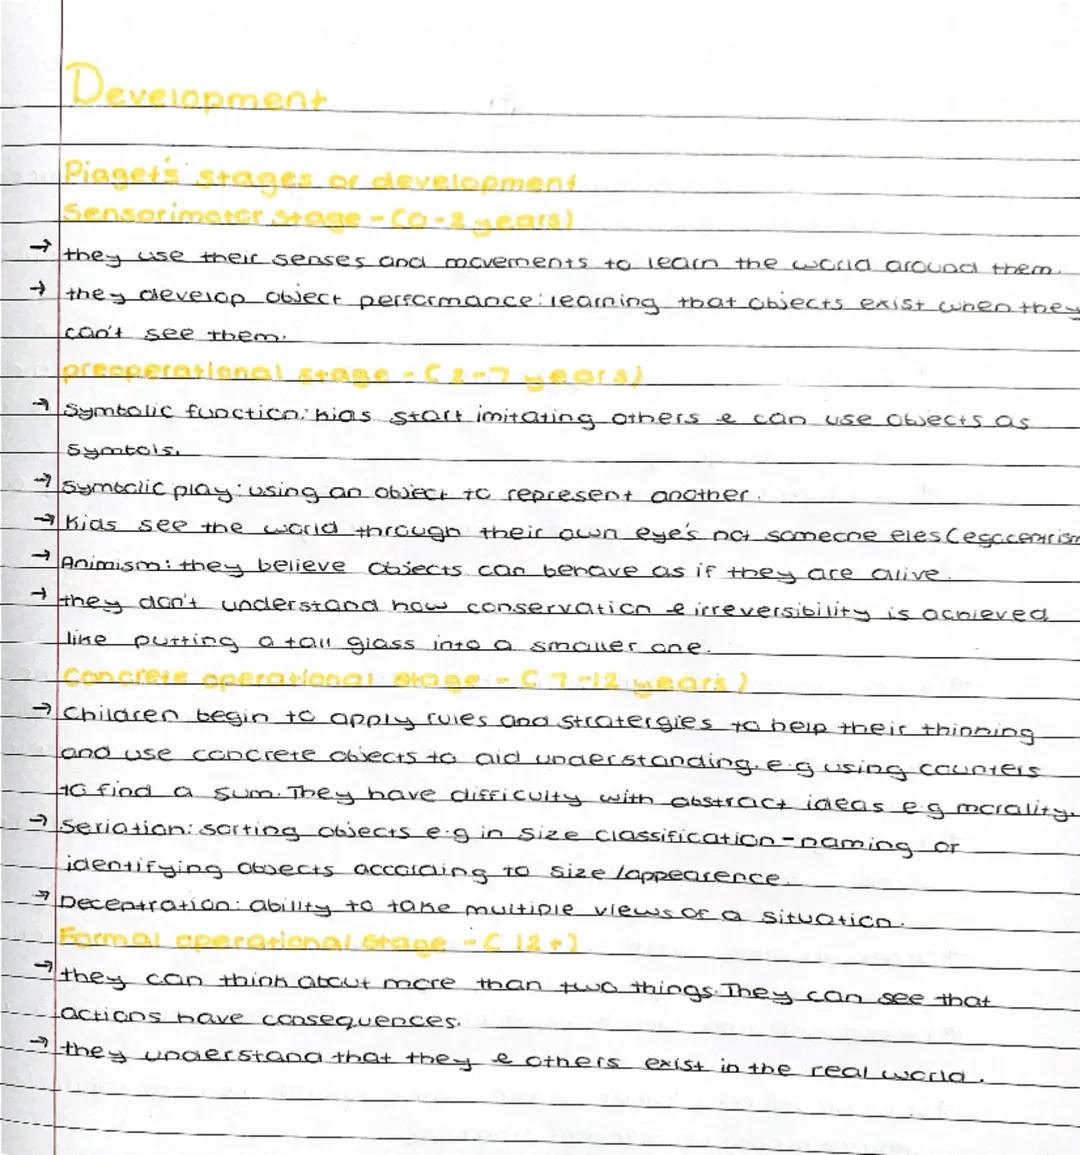 Development
Piaget's stages of development
Sensorimotor stage - (0-2 years)
→ they use their senses and movements to learn the world around them.
→ they develop object performance: learning that objects exist when they
can't see them.
preoperational stage - (2-7 years)
→ Symbolic function: kids start imitating others & can use objects as
symbols.
→ Symbolic play: using an object to represent another.
→ Kids see the world through their own eye's not someone eles (egocentrism
→ Animism: they believe objects can behave as if they are alive.
→ they don't understand how conservation & irreversibility is achieved
like putting a tall glass into a smaller one.
Concrete operational stage - (7-12 years)
→ Children begin to apply rules and stratergies to help their thinning
and use concrete objects to aid understanding. e.g using counters
to find a sum. They have difficulty with abstract ideas e.g morality.
→ Seriation: sorting objects e.g in size classification - naming or
identifying objects according to size / appearence.
→ Decentration: ability to take multiple views of a situation.
Formal operational stage - (12+)
→ they can think about more than two things. They can see that
actions have consequences.
→ they understand that they & others exist in the real world.